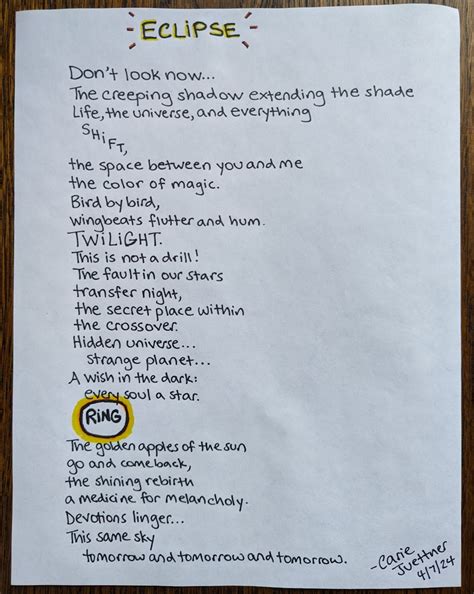 ECLIPSE
Don't look now...
The creeping shadow extending the shade
Life, the universe, and everything
SHiFT,
the space between you and me
the color of magic.
Bird by bird,
wingbeats flutter and hum.
TWiLiGHT.
This is not a drill!
The fault in our stars
transfer night,
the secret place within
the crossover.
Hidden universe...
strange planet...
A wish in the dark:
every soul a star.
RiNG
The golden apples of the sun
go and come back,
the shining rebirth
a medicine for melancholy.
Devotions linger...
This same sky
tomorrow and tomorrow and tomorrow.
-Carie
Juettner
4/7/24